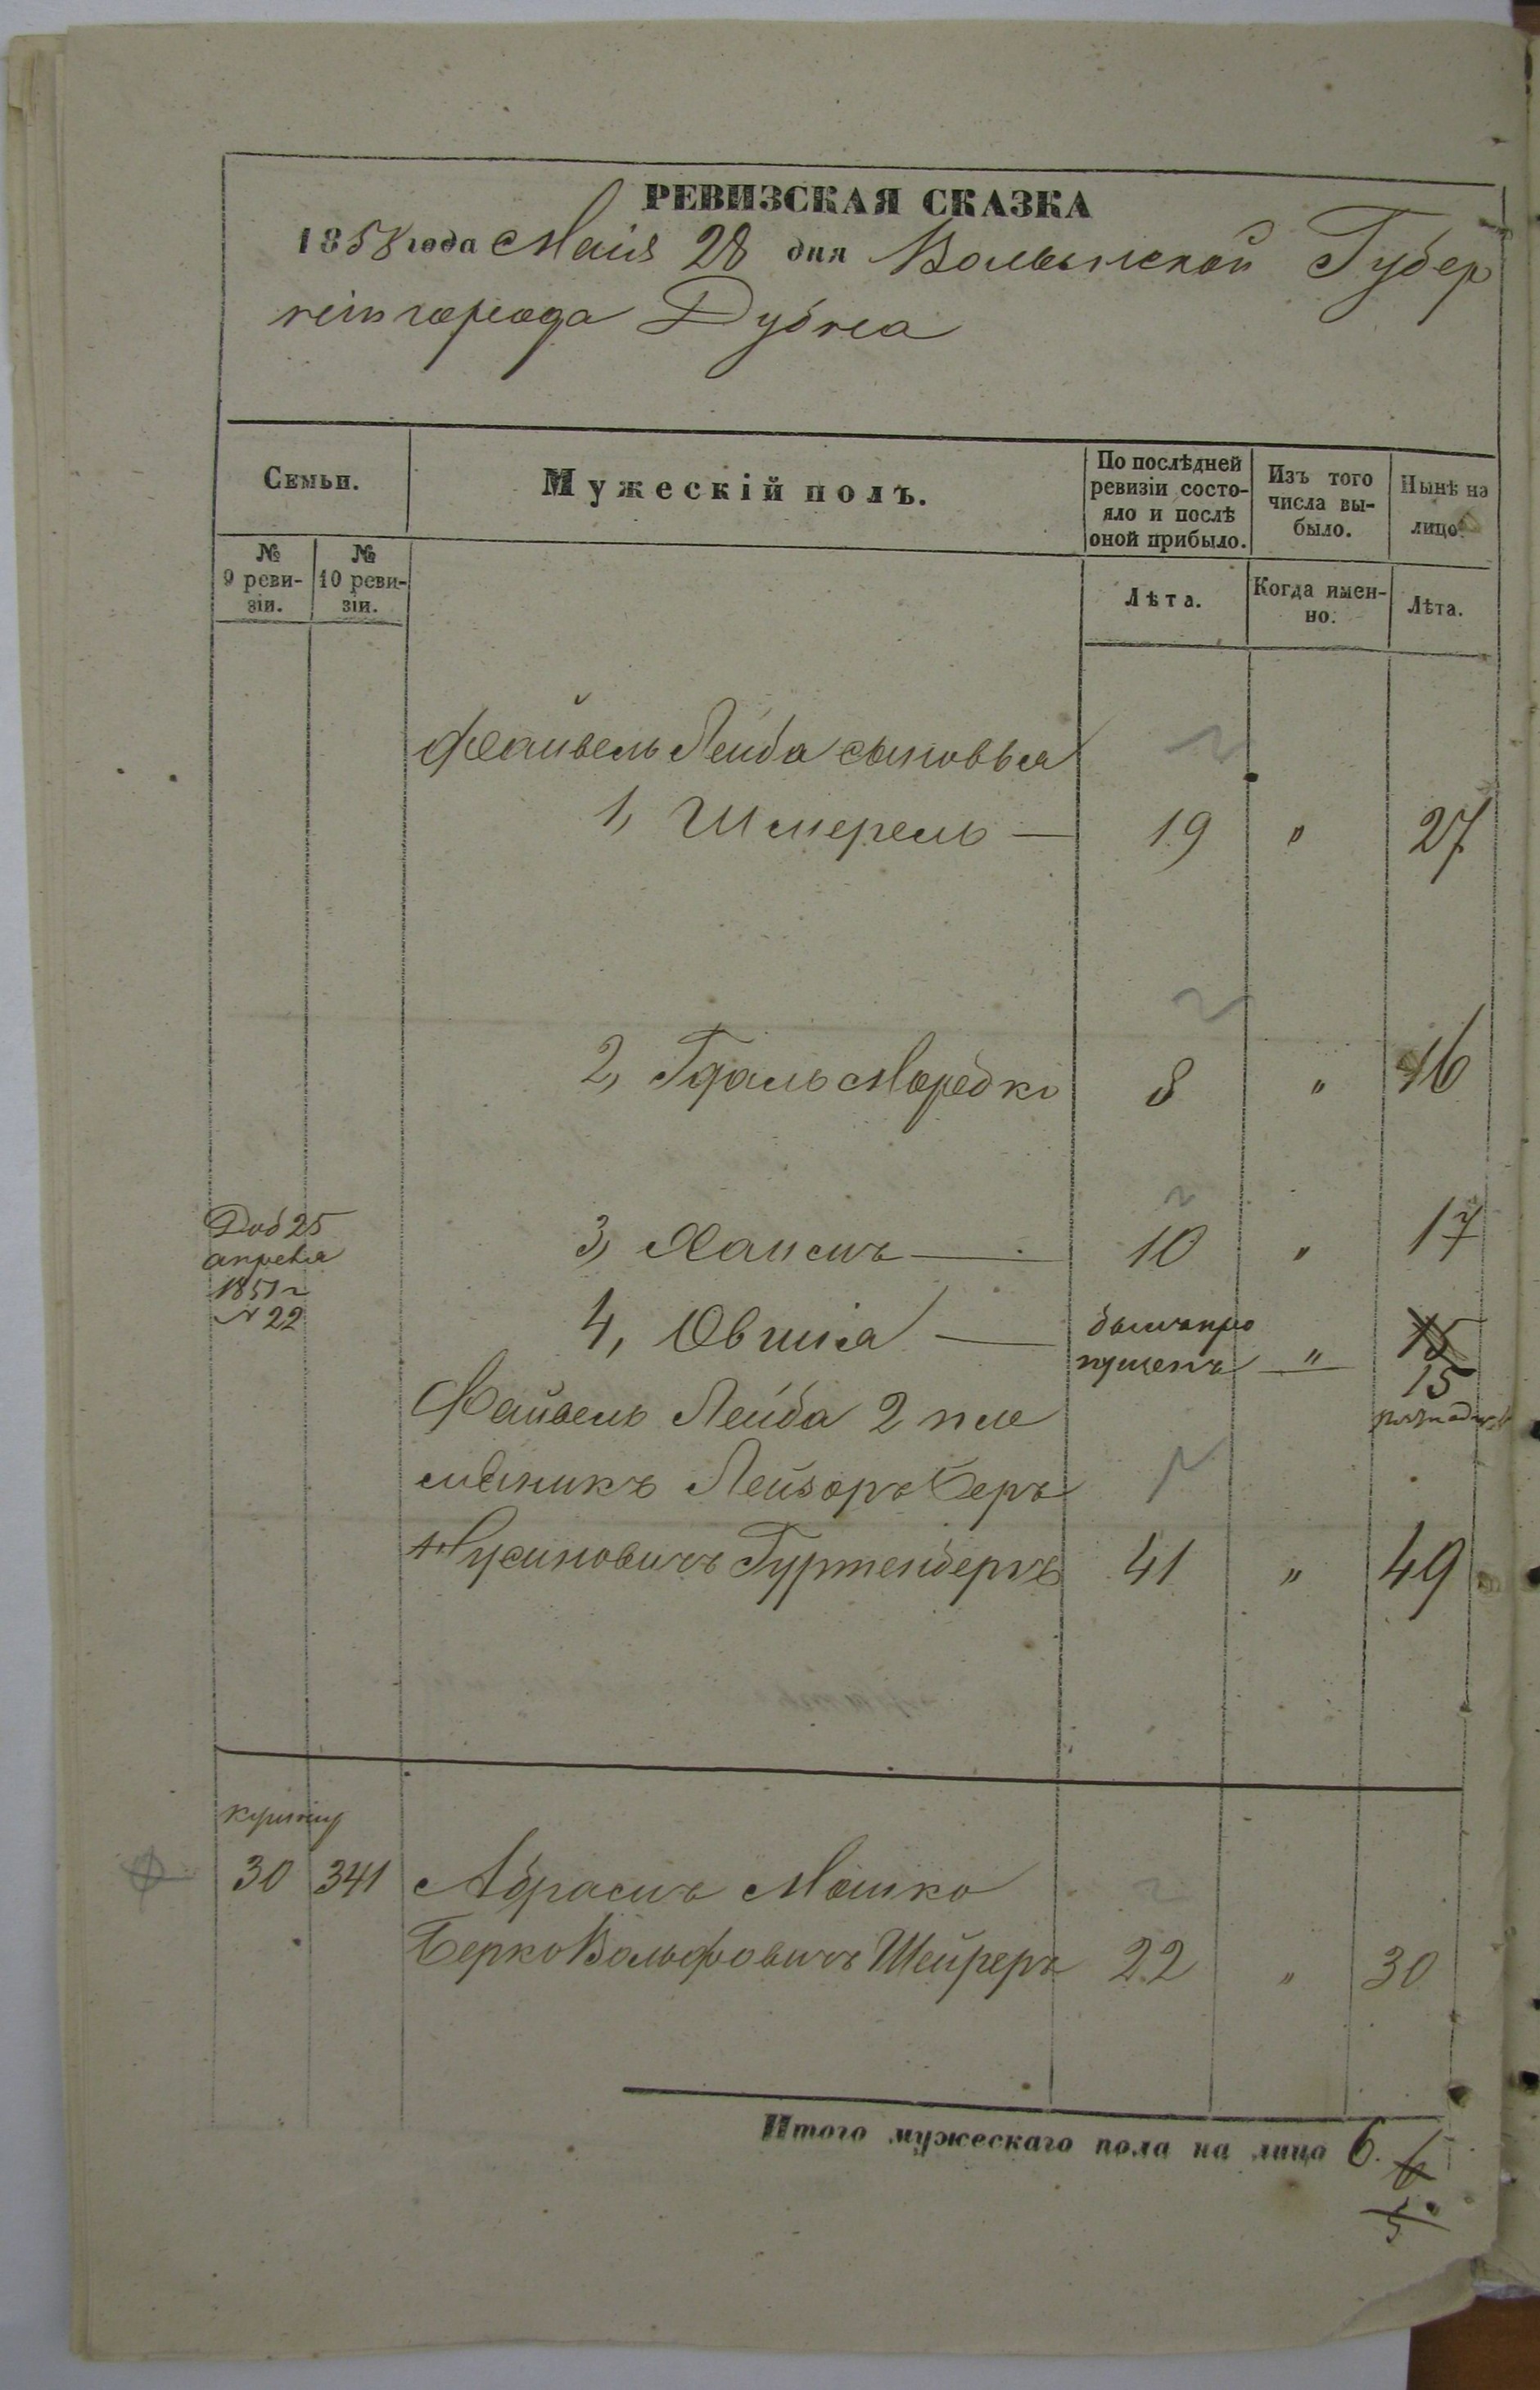 РЕВИЗСКАЯ СКАЗКА
1858 года Маія 28 дня Волынской Губер
ніи города Дубна
Семьи.
Мужескій полъ.
По послѣдней ревизіи состо-
яло и послѣ оной прибыло.
Изъ того числа вы-
было.
Нынѣ на лицо.
№ 9 реви-
зіи.
№ 10 реви-
зіи.
Лѣта.
Когда имен-
но.
Лѣта.
Файвель Лейба сыновья
1, Шмерель — 19 " 27
2, Гдаль Мордко 8 " 16
Доб 25
апреля
1851 г
№ 22
3, Хаимъ — 10 " 17
4, Овшіа — былъ про
пущенъ — " 15
15
Файвель Лейба 2 пле
мянникъ Лейзоръ Беръ
Нусиновичъ Гуртенберъ 41 " 49
30 341 Абрамъ Мошко
Берко Вольфовичъ Шейреръ 22 " 30
Итого мужескаго пола на лицо 6. 6
5